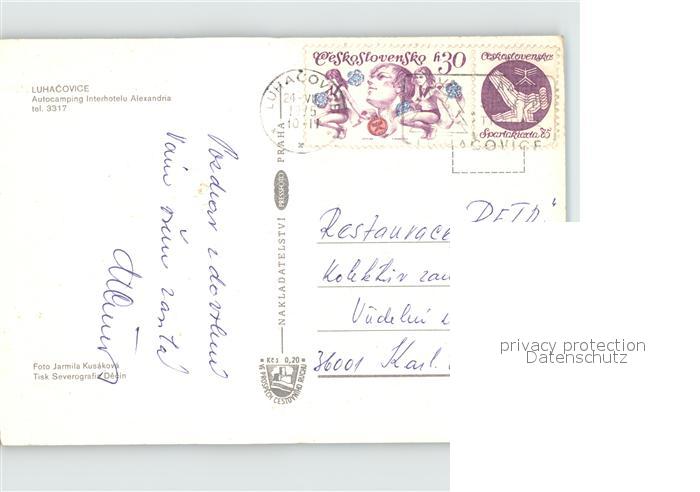 LUHAČOVICE
Autocamping Interhotelu Alexandria
tel. 3317
Pozdrav z dovolené
Vám všem zasílá
Foto Jarmila Kusáková
Tisk Severografia Děčín
NAKLADATELSTVÍ PRESSFOTO PRAHA
Kčs 0,20
VE PROSPĚCH CESTOVNÍHO RUCHU
Československo h 30
Československo
Spartakiáda 75
LUHAČOVICE
24.VI
1975
10-11
AČOVICE
Restaurace „DETA"
Kolektiv zam
Vúdelní
36001 Karl.
privacy protection
Datenschutz